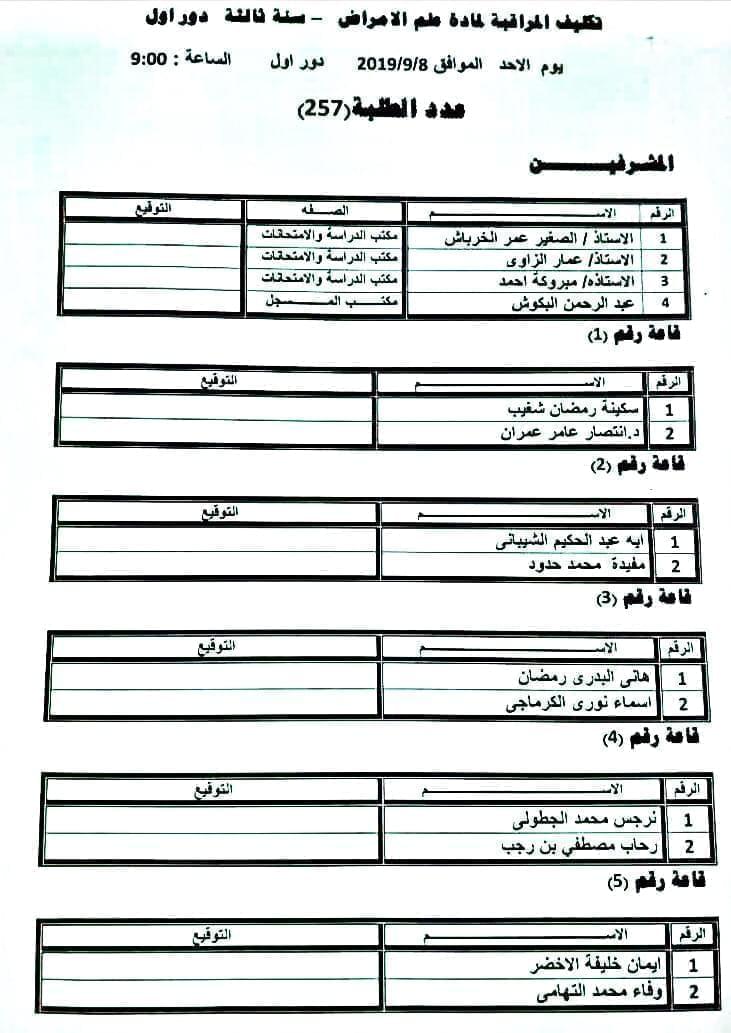 تكليف المراقبة لمادة علم الامراض - سنة ثالثة دور اول
يوم الاحد الموافق 2019/9/8 دور اول الساعة : 9:00
عدد الطلبة (257)
المشرفيــــــــن
الرقم الاســــــــم الصــفه التوقيع
1 الاستاذ / الصغير عمر الخرباش مكتب الدراسة والامتحانات
2 الاستاذ/ عمار الزاوى مكتب الدراسة والامتحانات
3 الاستاذه/ مبروكة احمد مكتب الدراسة والامتحانات
4 عبد الرحمن البكوش مكتــب المـــــسجل
قاعة رقم (1)
الرقم الاســــــــم التوقيع
1 سكينة رمضان شغيب
2 د.انتصار عامر عمران
قاعة رقم (2)
الرقم الاســــــــم التوقيع
1 ايه عبد الحكيم الشيبانى
2 مفيدة محمد حدود
قاعة رقم (3)
الرقم الاســــــــم التوقيع
1 هانى البدرى رمضان
2 اسماء نورى الكرماجى
قاعة رقم (4)
الرقم الاســــــــم التوقيع
1 نرجس محمد الجطولى
2 رحاب مصطفي بن رجب
قاعة رقم (5)
الرقم الاســــــــم التوقيع
1 ايمان خليفة الاخضر
2 وفاء محمد التهامى